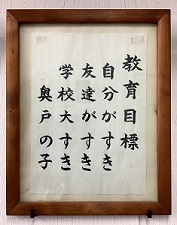 教育目標
自分がすき
友達がすき
学校大すき
奥戸の子